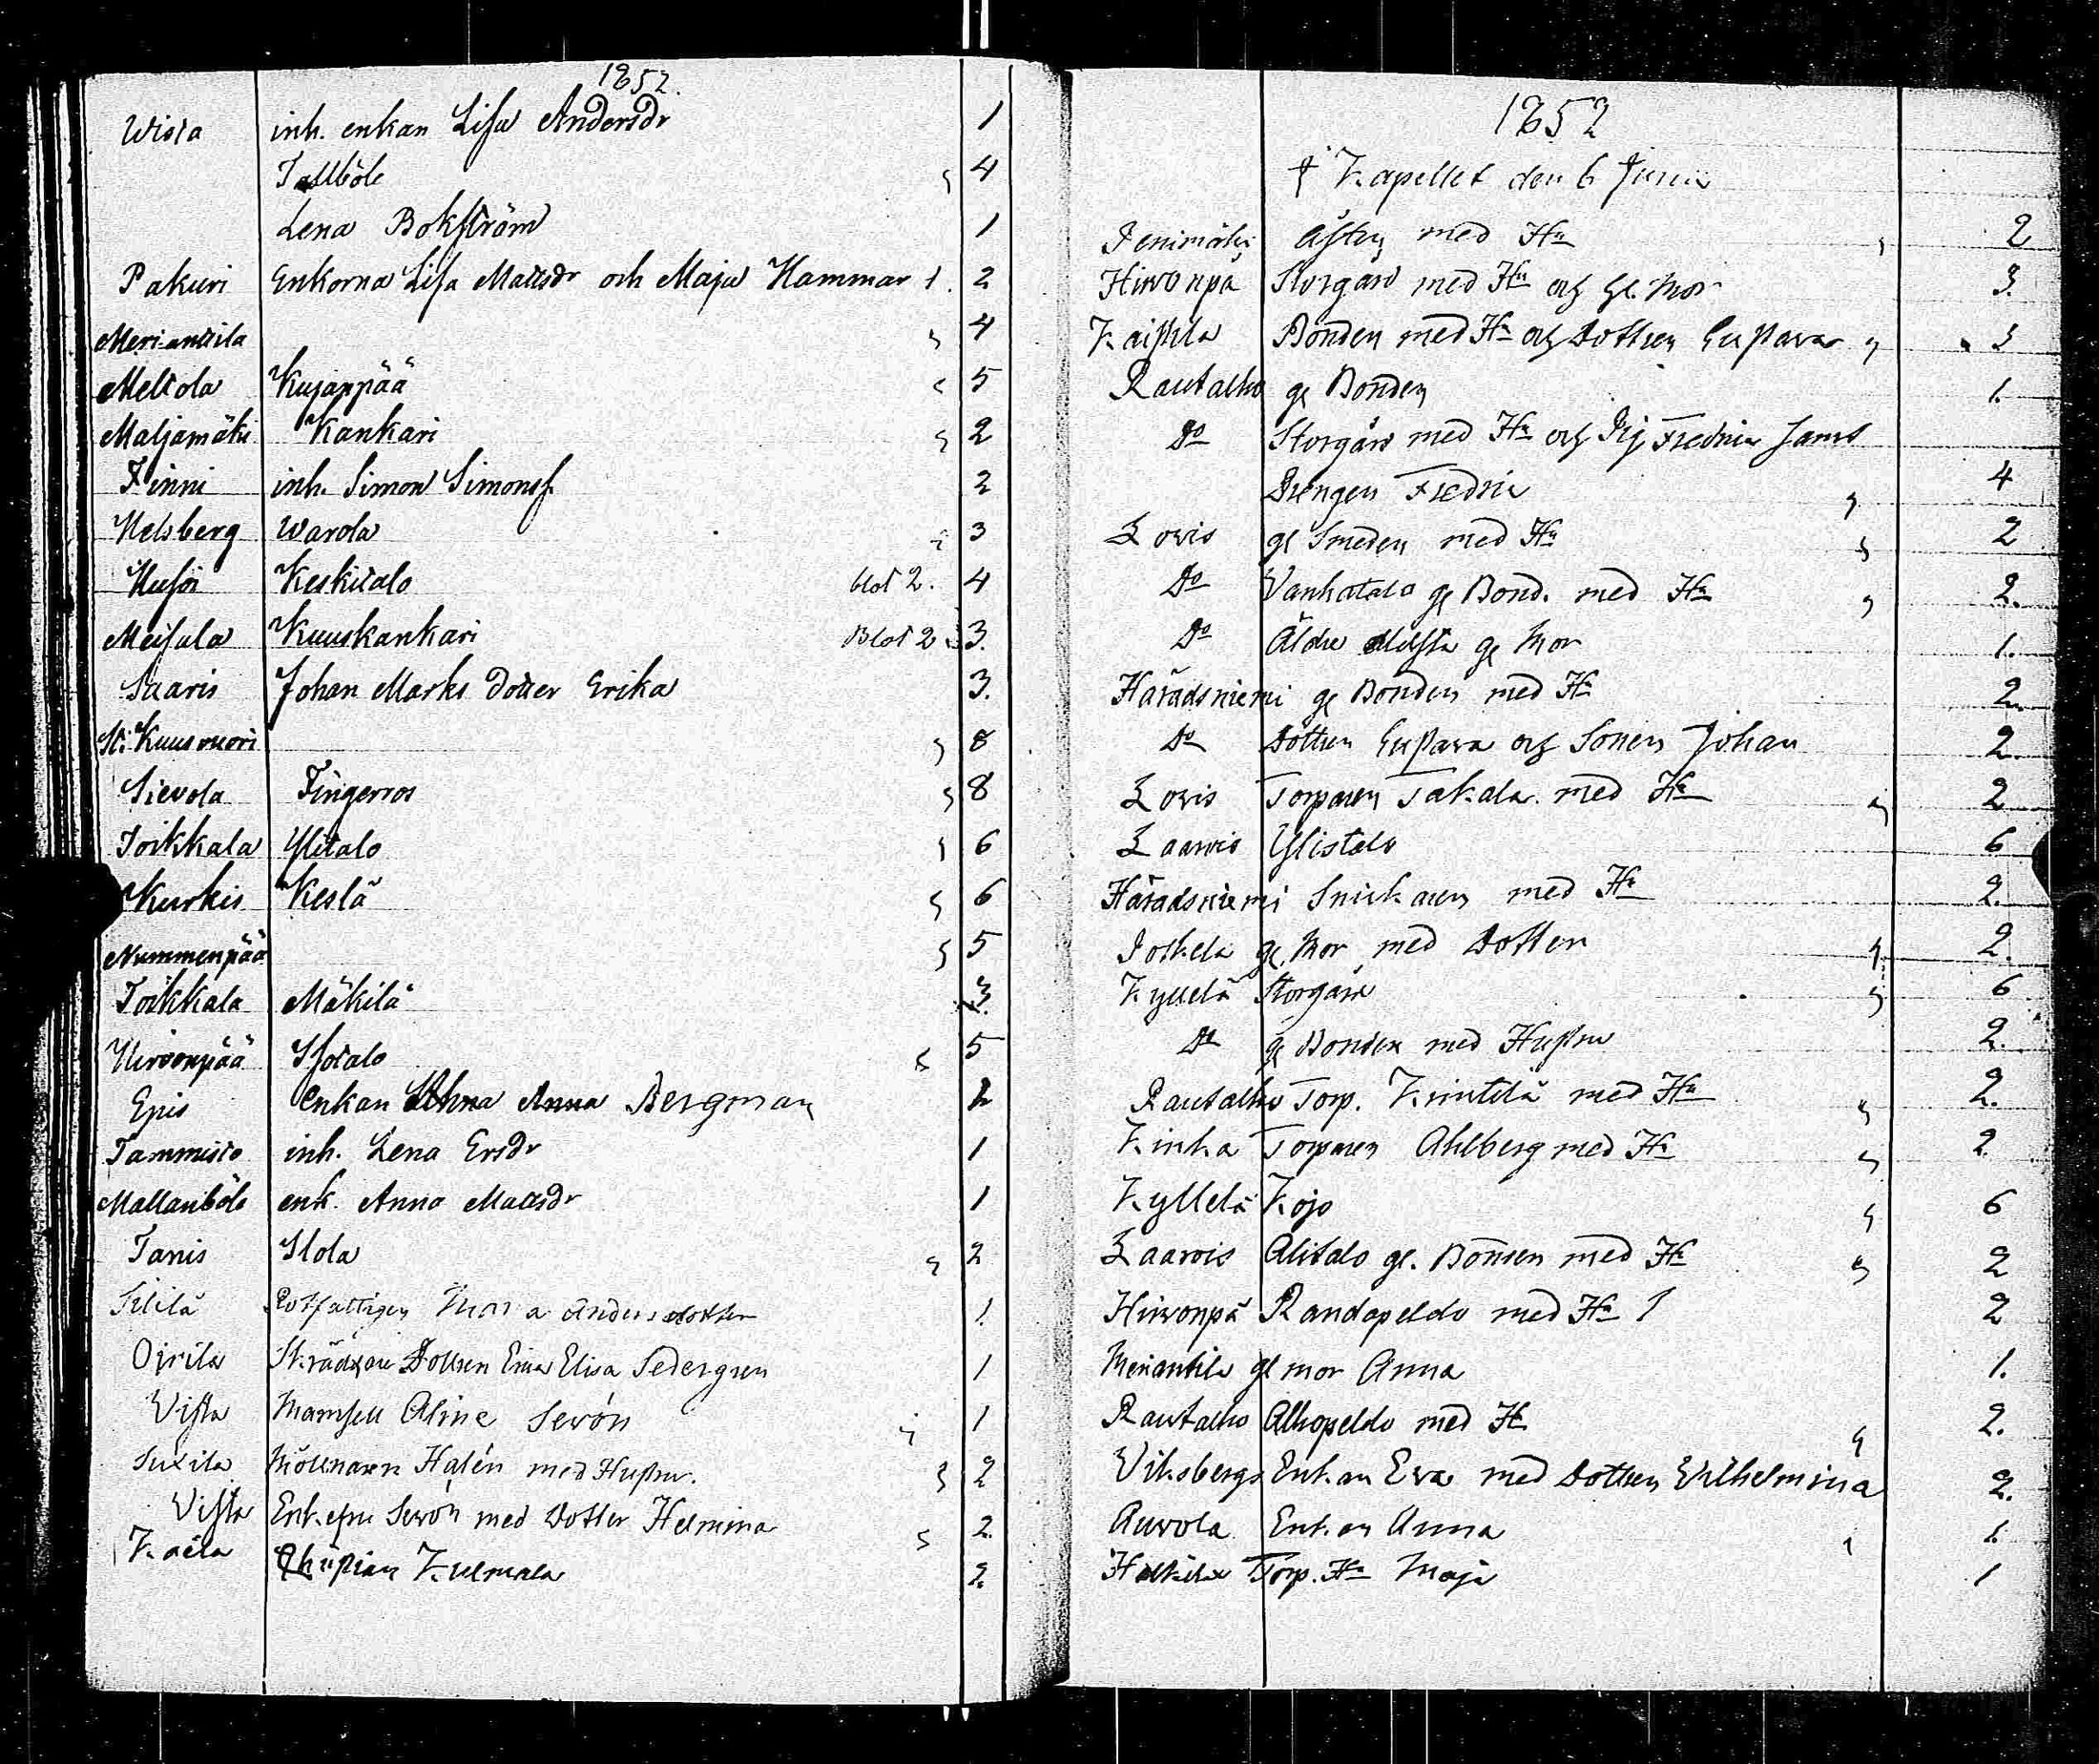 1852.
Wista inh. enkan Lisa Andersdr 1
Tallböle 4
Lena Bokström 1
Pakuri Enkorna Lisa Matsdr och Maja Hammar 1. 2
Meri-anttila 4
Meltola Kujanpää 5
Maljamäki Kankari 2
Finni inh. Simon Simonsf. 2
Helsberg Warola 3
Husöi Keskitalo blot 2. 4
Meisala Kuuskankari Blot 2 3.
Saaris Johan Marks dotter Erika 3.
St: Kuusvuori 8
Sievola Fingerroos 8
Toikkala Ylitalo 6
Kurkis Keslä 6
Nummenpää 5
Toikkala Mäkilä 3.
Hirvonpää Isotalo 5
Epis Enkan Anna Bergman
Tammisto inh. Lena Ersdr 1
Mallanböle enk. Anna Matsdr 1
Tanis Ilola 2
Rotfattigen Andersdotter 1.
Skräddare Dottren Elisa Sedergren 1
Vista Mamsell Aline Serón 1
Möllnaren Halén med Hustru. 2
Vista Enkefru Serón med Dotter Helmina 2.
Kulmala 2.
1852
Kapellet den 6 Junii
med Hu 2
Hirvonpä Storgård med Hu och Gl. Mor 3.
Kaistila Bonden med Hu och Dottren Gustava 3
Rautalho gl Bonden 1.
Do Storgård med Hu och Fredrica samt
Drengen Fredric 4
Lovis gl Smeden med Hu 2
Do Vanhatalo gl Bond. med Hu 2.
Do Äldre gl Mor 1.
Häradsniemi gl Bonden med Hu 2.
Do Dottren Gustava och Sonen Johan 2
Lovis Torparen Takala med Hu 2
Laarois Ylistalo 6
Häradsniemi Snickaren med Hu 2.
Joskela gl. Mor med Dotter 2.
Kyllelä Storgård 6
Do gl Bonden med Hustru 2.
Rautalho Torp. Knintilä med Hu 2.
Kinka Torparen Ahlberg med Hu 2.
Kyllelä Kojo 6
Laarois Alitalo gl. Bonden med Hu 2
Hirvonpä Randapeldo med Hu 1 2
Meriantila gl mor Anna 1.
Rautalho Alhopeldo med Hu 2.
Viksbergs Enkan Eva med Dottren Vilhelmina 2.
Aurola Enkan Anna 1.
Torp. Hu Maja 1